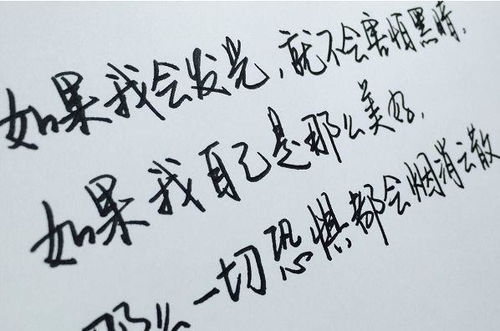 如果我会发光，就不会害怕黑暗，
如果我自己是那么美好，
那么一切恐惧都会烟消云散